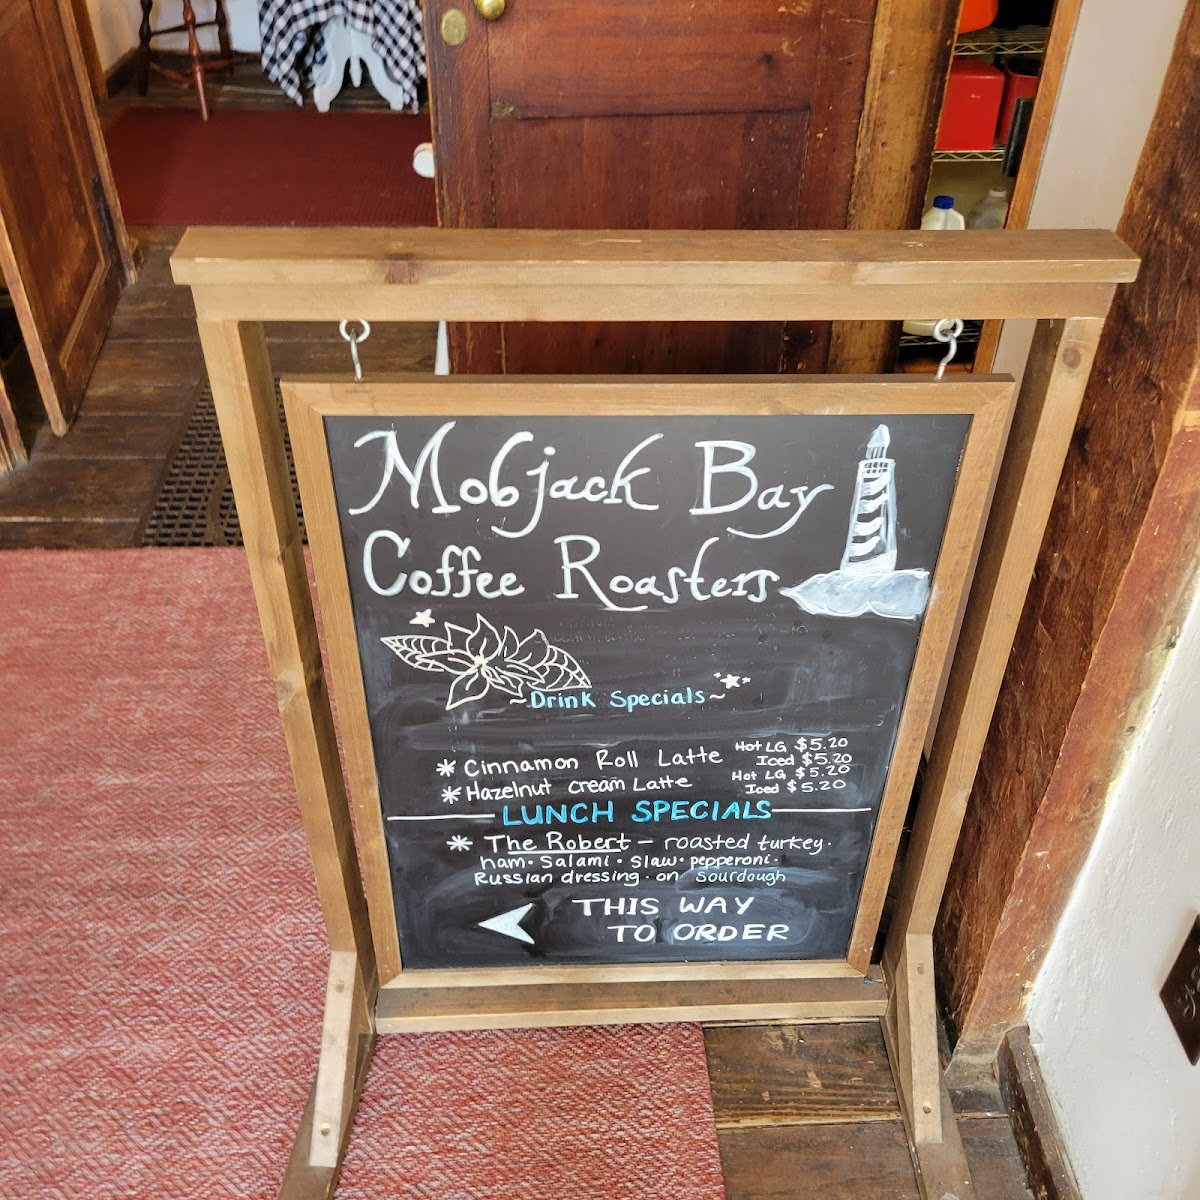 Mobjack Bay
Coffee Roasters
~Drink Specials~
* Cinnamon Roll Latte Hot LG $5.20
Iced $5.20
* Hazelnut cream Latte Hot LG $5.20
Iced $5.20
LUNCH SPECIALS
* The Robert - roasted turkey.
ham · Salami · Slaw · pepperoni ·
Russian dressing · on Sourdough
THIS WAY
TO ORDER